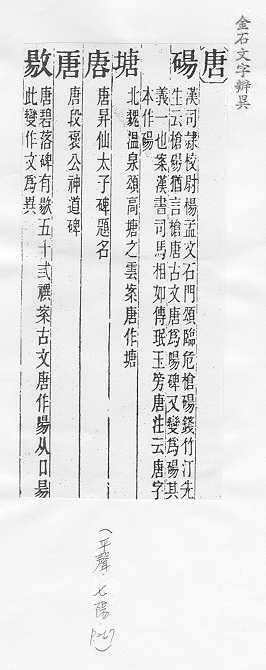 金石文字辨異
唐
碭 漢司隸校尉楊孟文石門頌臨危槍碭錢竹汀先
生云槍碭猶言槍唐古文唐為啺碑又變為碭其
義一也案漢書司馬相如傳珉玉旁唐注云唐字
本作碭
塘 北魏溫泉頌高塘之雲案唐作塘
唐昇仙太子碑題名
唐段褒公神道碑
唐碧落碑有敭五十三禩案古文唐作啺从口昜
此變作文為異
(平聲·七陽